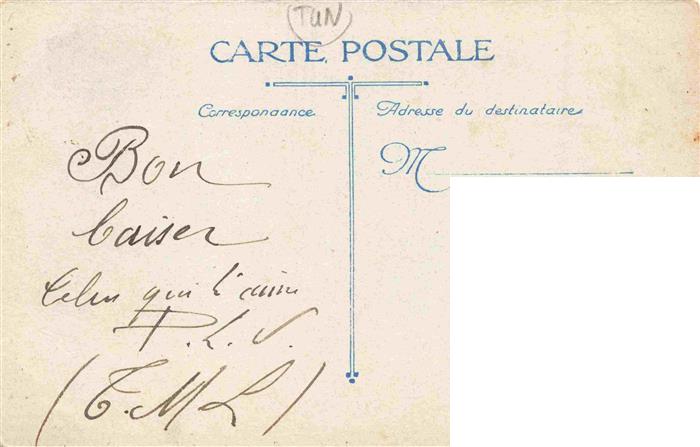 TUN
CARTE POSTALE
Correspondance
Adresse du destinataire
M
Bon
baiser
Celui qui t'aime
P.L.V.
(T.M.L)